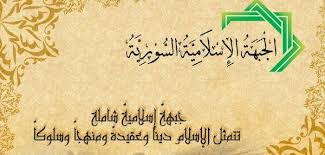 الجَبْهَةُ الإِسْلَامِيَّةُ السُّورِيَّةُ
جبهة إسلامية شاملة
تتمثل الإسلام ديناً وعقيدة ومنهجاً وسلوكاً